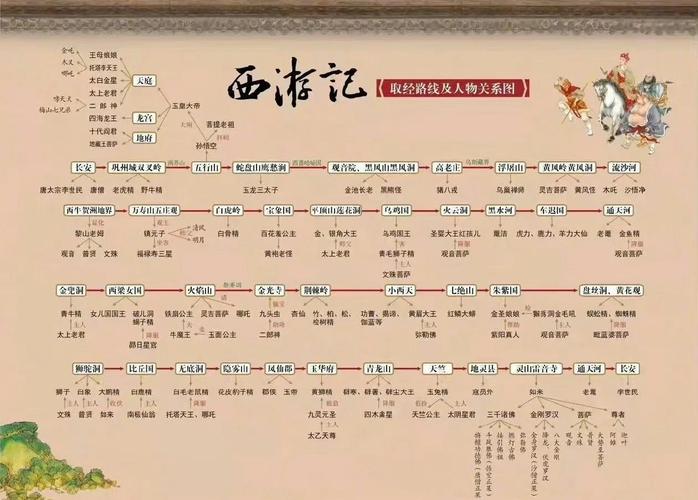 西游记
取经路线及人物关系图
金吒 木叉 哪吒
王母娘娘
托塔李天王
太白金星
太上老君
二郎神
四海龙王
十代阎君
地藏王菩萨
哮天犬
梅山七兄弟
天庭
龙宫
地府
玉皇大帝
大闹
菩提老祖
拜师
孙悟空
长安 巩州城双叉岭 两界山 五行山 蛇盘山鹰愁涧 西番哈咇国 观音院、黑风山黑风洞 高老庄 乌斯藏界 浮屠山 黄风岭黄风洞 流沙河
唐太宗李世民 唐僧 老虎精 野牛精 玉龙三太子 金池长老 黑熊怪 猪八戒 乌巢禅师 灵吉菩萨 黄风怪 木吒 沙悟净
西牛贺洲地界 万寿山五庄观 白虎岭 宝象国 平顶山莲花洞 乌鸡国 火云洞 黑水河 车迟国 通天河
黎山老姆 镇元子 清风 明月 白骨精 百花羞公主 金、银角大王 乌鸡国王 圣婴大王红孩儿 鼍洁 虎力、鹿力、羊力大仙 老鼋 金鱼精
观音 普贤 文殊 福禄寿三星 黄袍老怪 太上老君 青毛狮子精 观音菩萨 观音菩萨
文殊菩萨
金兜洞 西梁女国 火焰山 祭赛国 金光寺 荆棘岭 小西天 七绝山 朱紫国 盘丝洞、黄花观
青牛精 女儿国国王 破儿洞 蝎子精 铁扇公主 灵吉菩萨 哪吒 九头虫 杏仙 竹、柏、松、桧树精 功曹、揭谛、伽蓝等 黄眉大王 红鳞大蟒 金圣娘娘 獬豸洞金毛吼 蜘蛛精、蜈蚣精
太上老君 昴日星官 牛魔王 玉面公主 二郎神 弥勒佛 紫阳真人 观音菩萨 毗蓝婆菩萨
狮驼洞 比丘国 无底洞 隐雾山 凤仙郡 玉华府 青龙山 天竺 地灵县 灵山雷音寺 通天河 长安
狮子 白象 大鹏精 白鹿精 白毛老鼠精 花皮豹子精 郡侯 玉帝 黄狮精 辟寒、辟暑、辟尘大王 玉兔精 寇员外 如来 老鼋 李世民
文殊 普贤 如来 南极仙翁 托塔天王、哪吒 九灵元圣 四木禽星 天竺公主 太阴星君 三千诸佛 金刚罗汉 菩萨 尊者
太乙天尊
旃檀功德佛(唐僧正果)
斗战胜佛(悟空正果)
接引佛祖
燃灯古佛
弥勒佛
金身罗汉(沙僧正果)
降龙、伏虎罗汉
八大金刚
观音
文殊
普贤
大势至菩萨
阿傩
迦叶